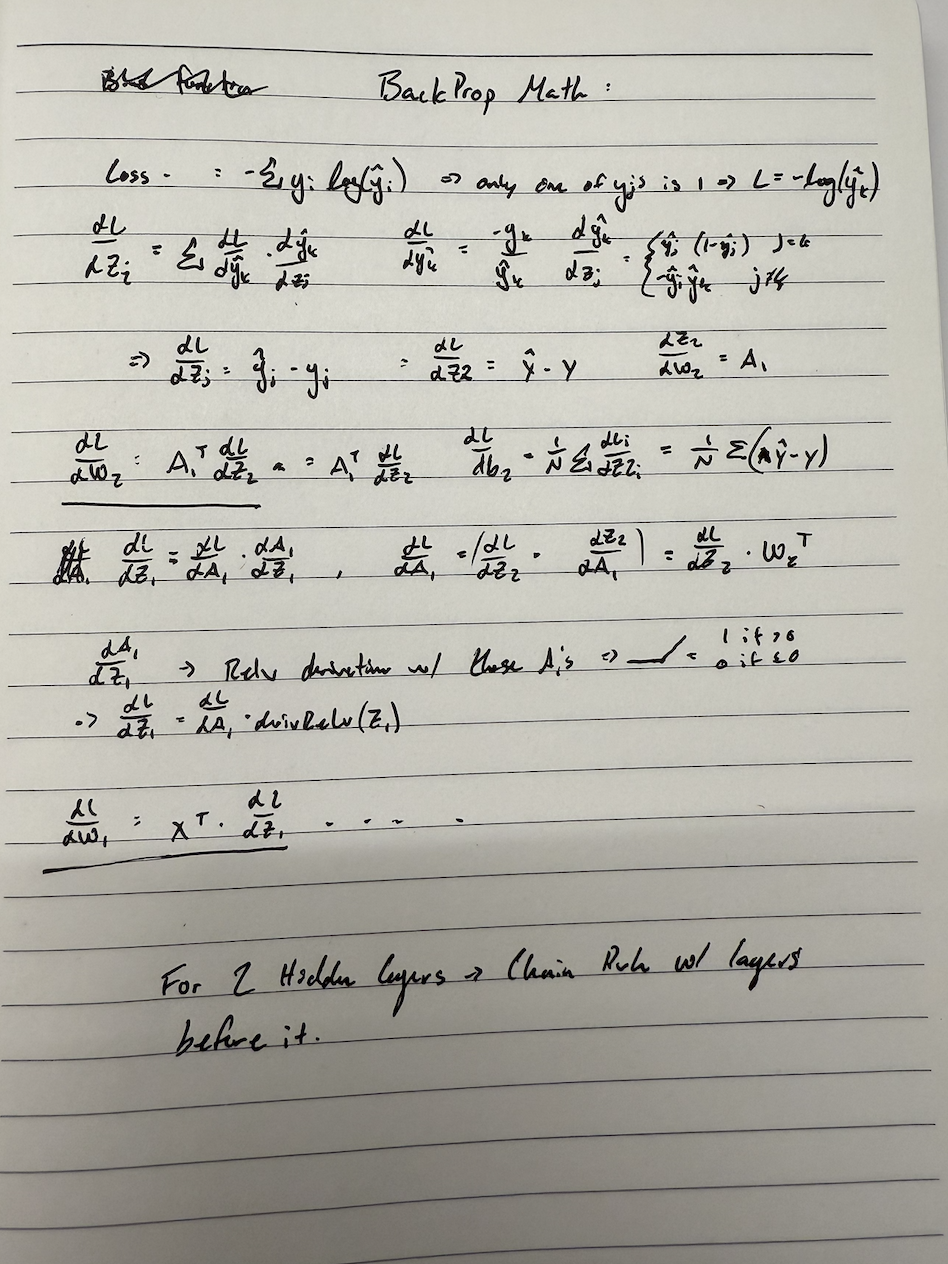 BackProp Math :
Loss - : -Σ yᵢ log(ŷᵢ) => only one of yⱼs is 1 => L = -log(ŷₖ)
dL/dZⱼ = Σ dL/dŷₖ · dŷₖ/dzⱼ dL/dŷₖ = -yₖ/ŷₖ dŷₖ/dzⱼ = { ŷⱼ (1-ŷⱼ) j=k -ŷⱼŷₖ j≠k
=> dL/dZⱼ = ŷⱼ - yⱼ = dL/dZ2 = Ŷ - Y dZ₂/dW₂ = A₁
dL/dW₂ : A₁ᵀ dL/dZ₂ = A₁ᵀ dL/dZ₂ dL/db₂ = 1/N Σ dLᵢ/dZ2ᵢ = 1/N Σ(Ŷ-Y)
dL/dZ₁ = dL/dA₁ · dA₁/dZ₁ , dL/dA₁ = (dL/dZ₂ · dZ₂/dA₁) = dL/dZ₂ · W₂ᵀ
dA₁/dZ₁ → Relu w/ those A₁'s => = 1 if >0 0 if ≤0
=> dL/dZ₁ = dL/dA₁ · derivRelu(Z₁)
dL/dW₁ : Xᵀ · dL/dZ₁ . . . .
For 2 Hidden layers → Chain Rule w/ layers
before it.